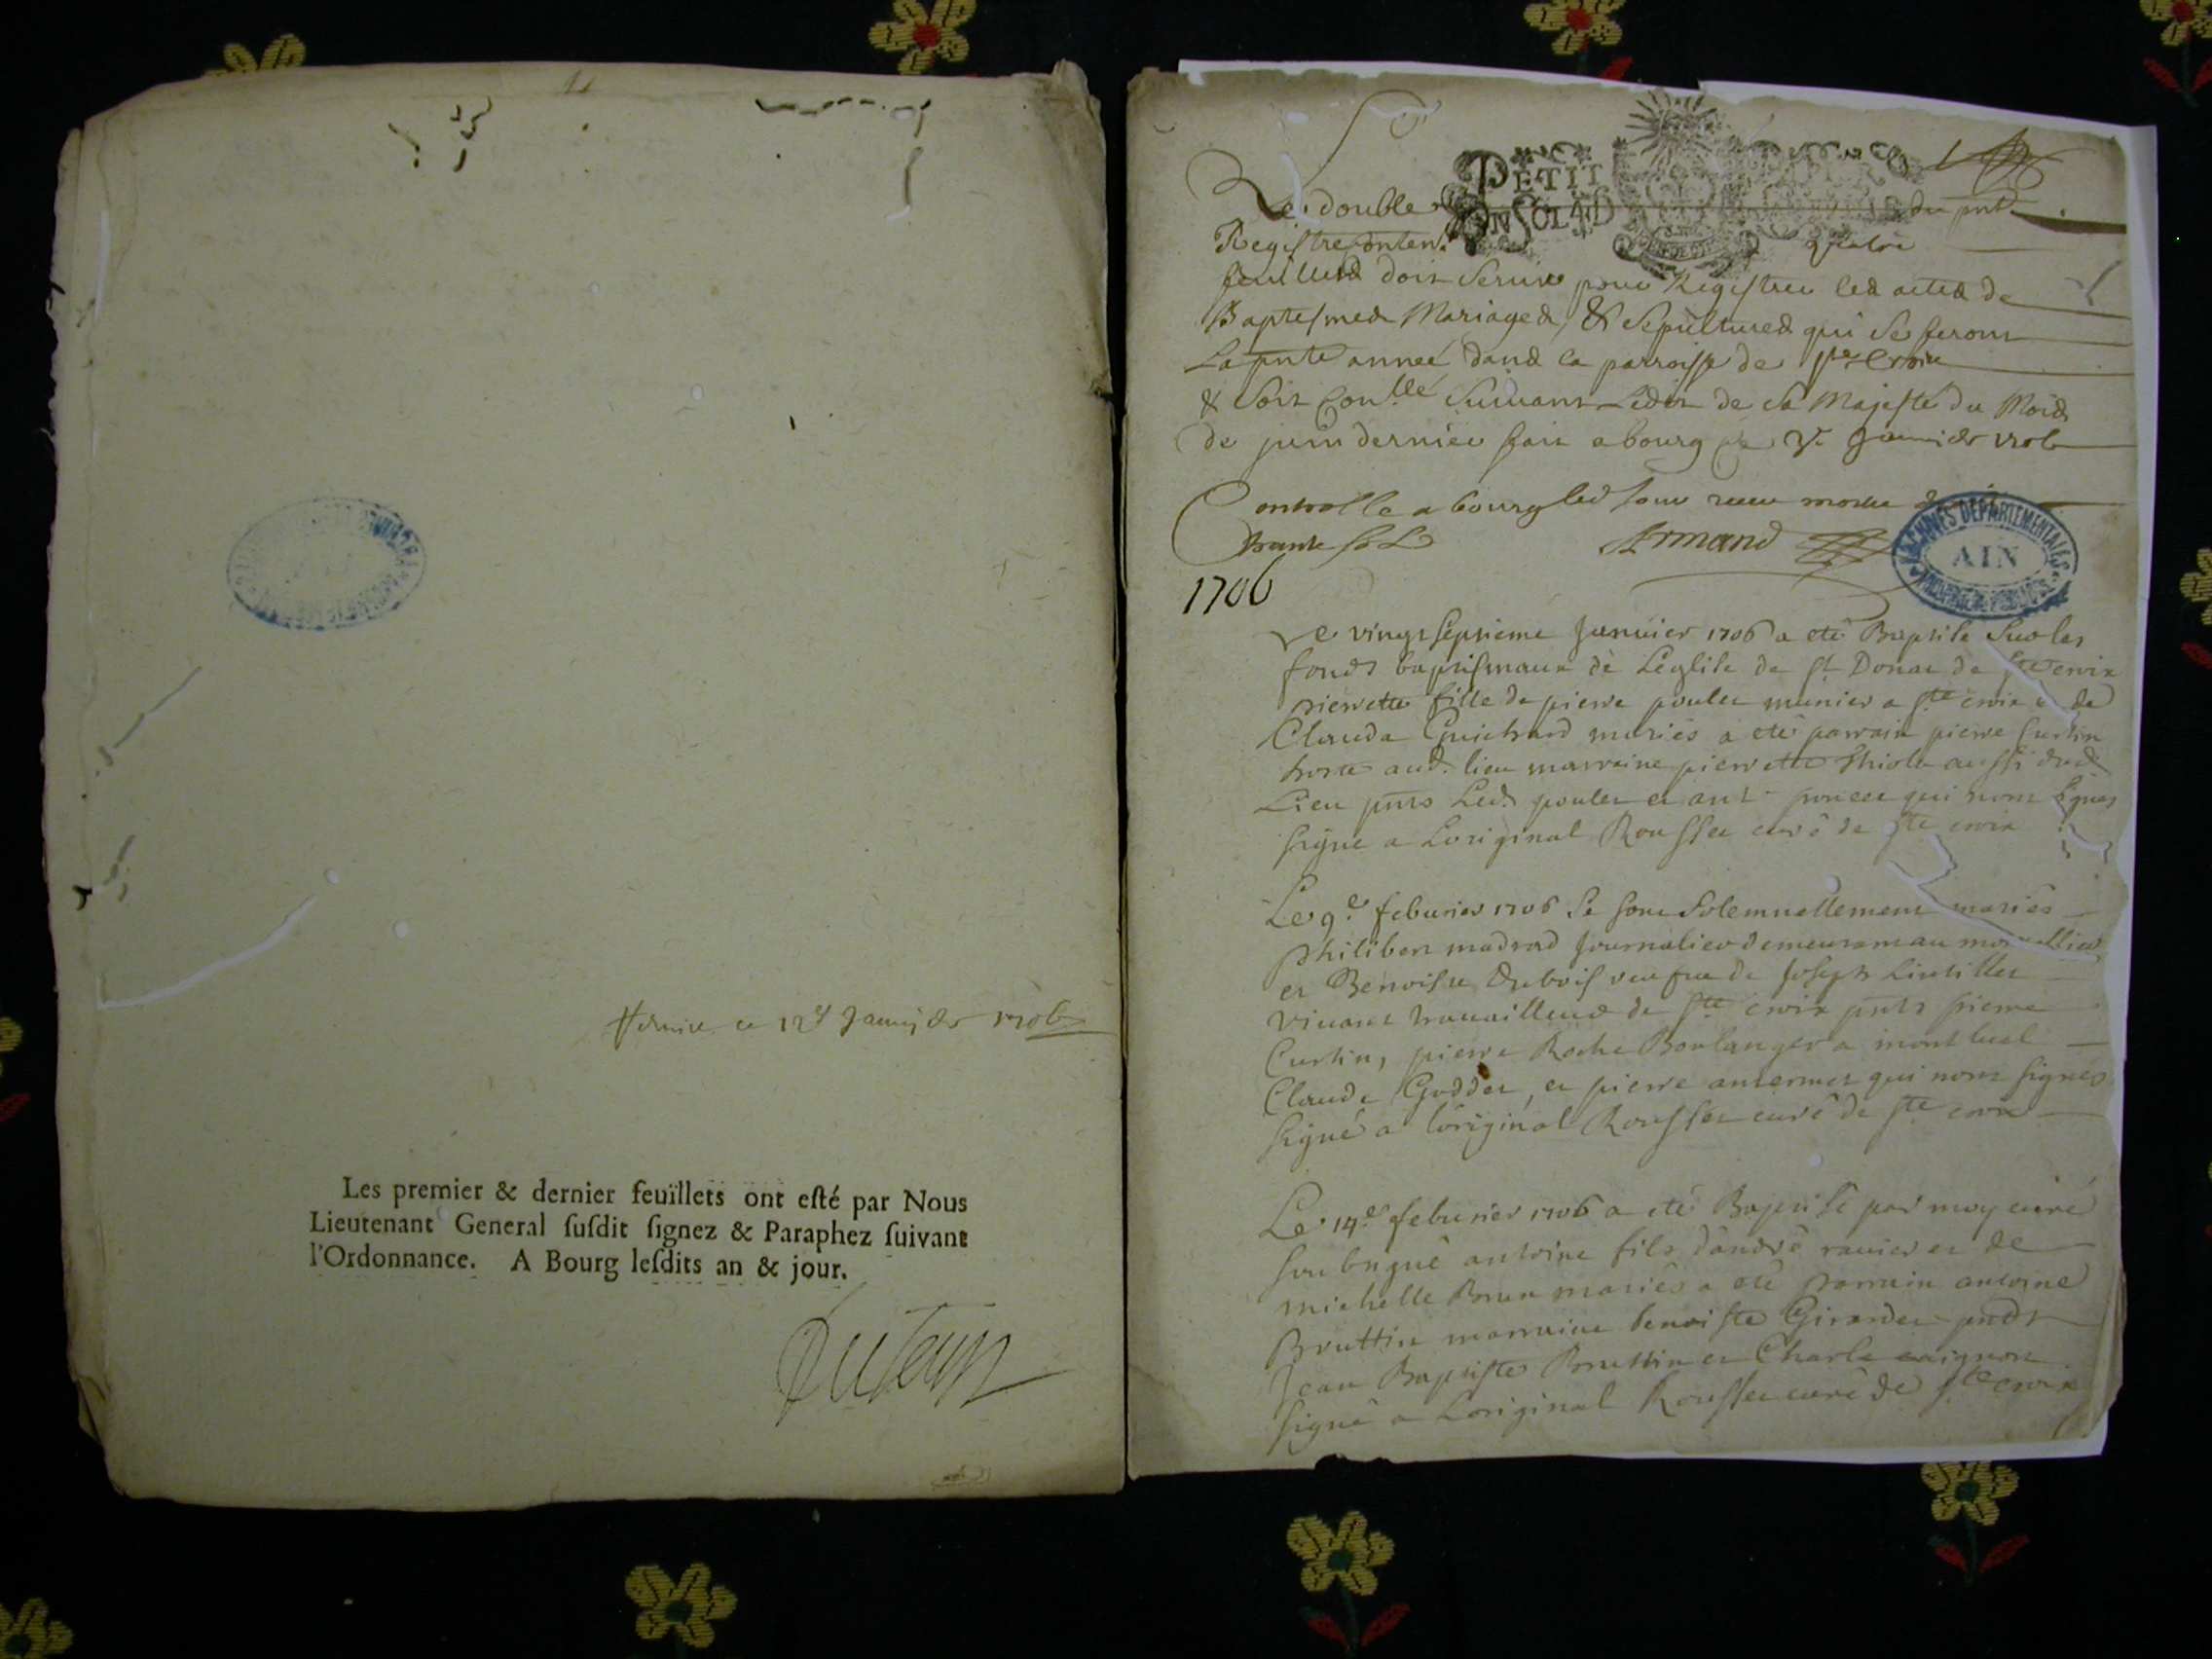 ce 12e Janvier 1706
Les premier & dernier feuïllets ont eſté par Nous
Lieutenant General ſuſdit ſignez & Paraphez ſuivant
l'Ordonnance. A Bourg leſdits an & jour.
PETIT PAPIER
Le double du pnt
Registre quatre
feuillets doit servir pour Registrer les actes de
Baptesmes Mariages & Sepultures qui se feront
La pnte année dans la parroisse de Ste Croix
& soit Con.llé suivant Ledit de Sa Majesté du Mois
de juin dernier fait a bourg ce Janvier 1706
Controllé a bourg led jour
trente s Armand
ARCHIVES DEPARTEMENTALES
AIN
1706
Le vingt septieme Janvier 1706 a eté Baptisé sur les
fonds baptismaux de Léglise de St Donat de Ste croix
pierrette fille de pierre poulet munier a Ste croix et de
Clauda Guichard mariés a eté parrain pierre Curtin
hoste aud. lieu marraine pierrette Thiole aussi dud.
Lieu pnts Led. poulet et ant. qui nont signes
signé a Loriginal Rousset curé de Ste croix
Le 9e feburier 1706 se sont solemnellement mariés
philibert madrad journalier demeurant au
et Benoiste Dubois veufue de Joseph
vivant travailleur de Ste croix pnts pierre
Curtin, pierre Roche Boulanger a montluel
Claude Goddet, et pierre antermet qui nont signés
signé a loriginal Rousset curé de Ste croix
Le 14e feburier 1706 a eté Baptisé par moy curé
soubsigné antoine fils dandré ravier et de
michelle Brun mariés a eté parrain antoine
Bruttin marraine benoiste Girardet pnts
Jean Baptiste Bruttin et Charle
signé a Loriginal Rousset curé de Ste croix